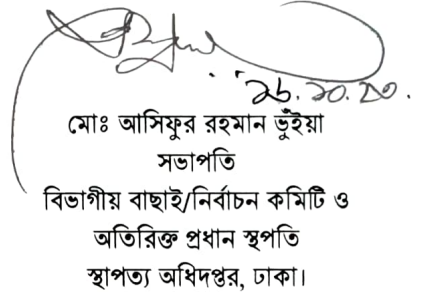 মোঃ আসিফুর রহমান ভুঁইয়া
সভাপতি
বিভাগীয় বাছাই/নির্বাচন কমিটি ও
অতিরিক্ত প্রধান স্থপতি
স্থাপত্য অধিদপ্তর, ঢাকা।